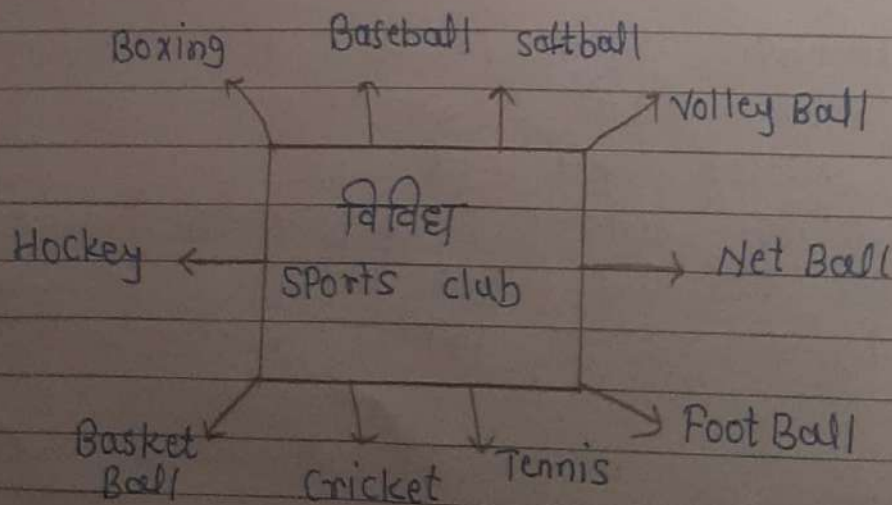 Boxing Baseball softball
Volley Ball
विविध
Hockey
Net Ball
SPorts club
Basket
Ball
Cricket
Tennis
Foot Ball